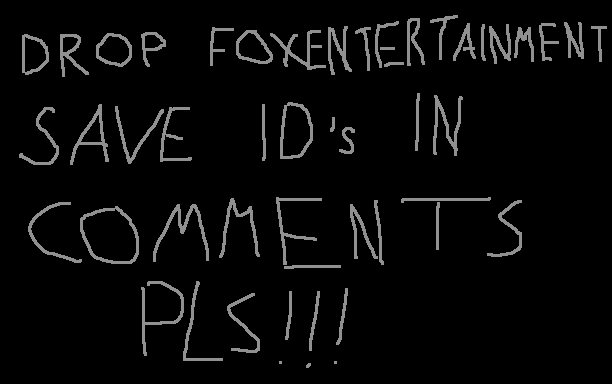 DROP FOXENTERTAINMENT
SAVE ID's IN
COMMENTS
PLS!!!